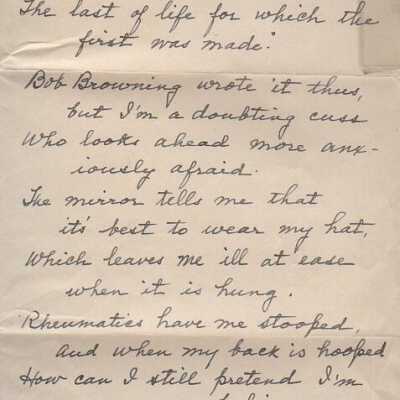 The last of life for which the
first was made."
Bob Browning wrote it thus,
but I'm a doubting cuss
Who looks ahead more anx-
iously afraid.
The mirror tells me that
it's best to wear my hat,
Which leaves me ill at ease
when it is hung.
Rheumatics have me stooped,
and when my back is hooped
How can I still pretend I'm